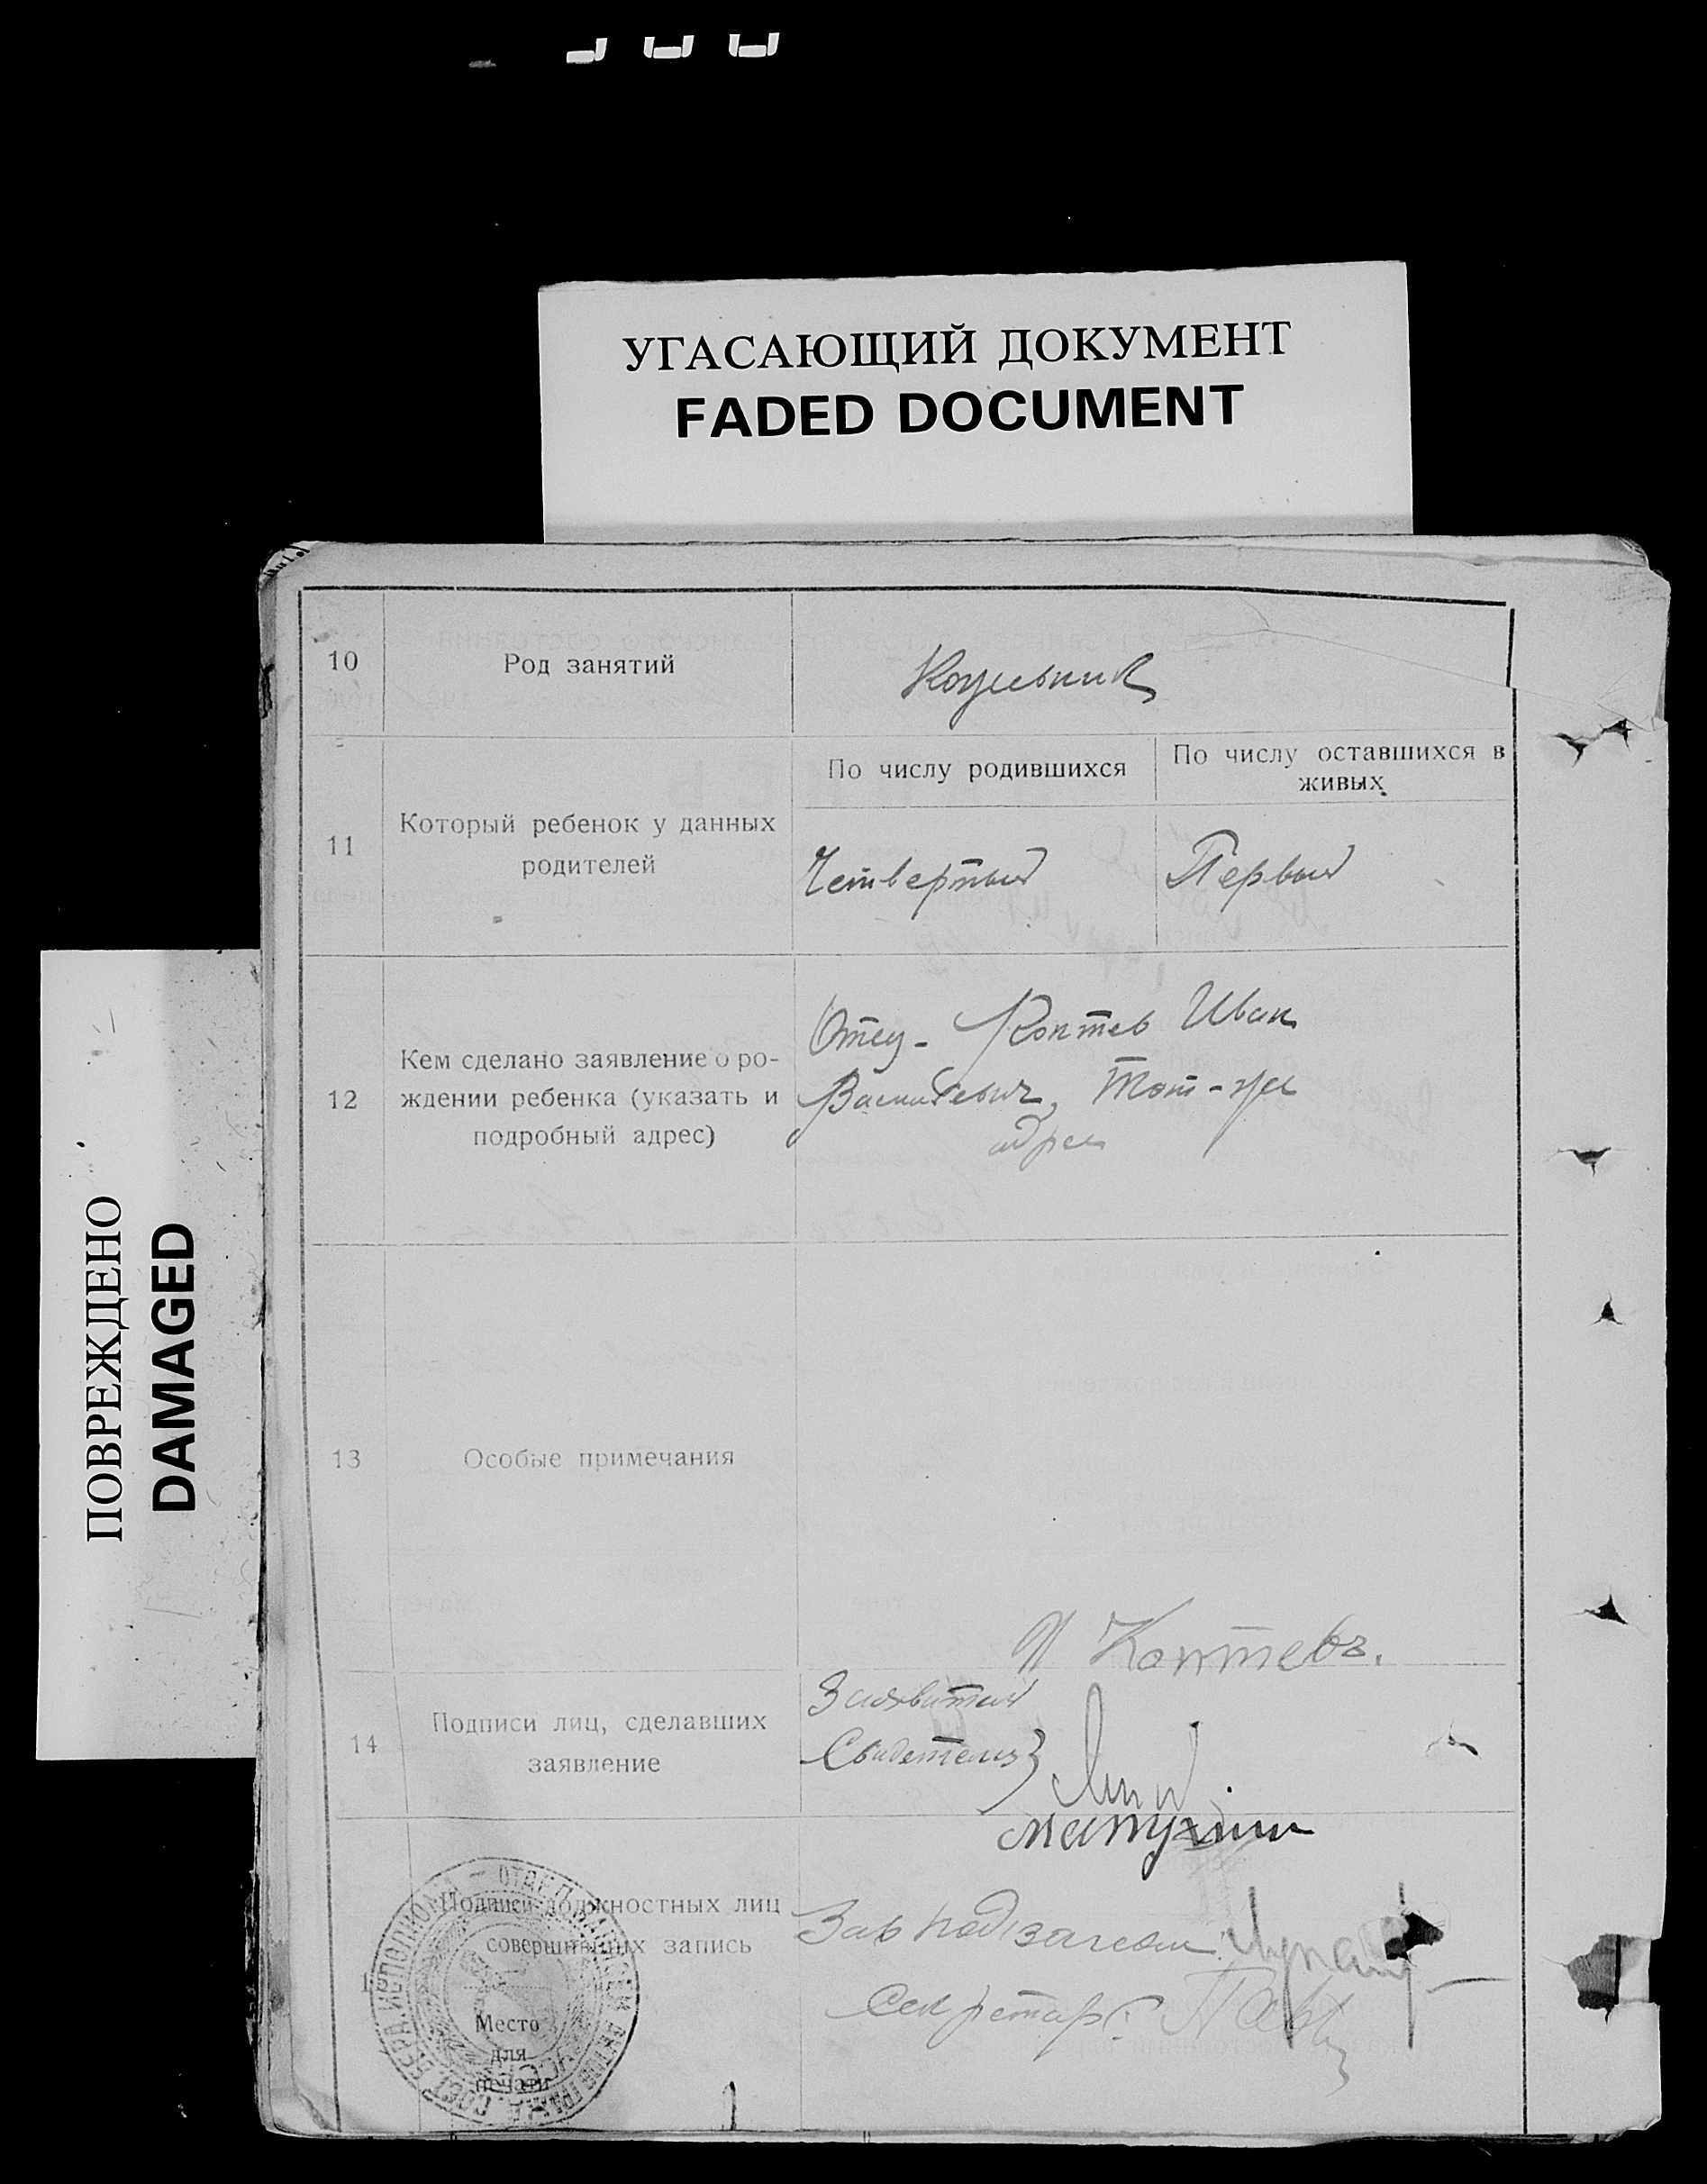 УГАСАЮЩИЙ ДОКУМЕНТ
FADED DOCUMENT
ПОВРЕЖДЕНО
DAMAGED
10 Род занятий
По числу родившихся
По числу оставшихся в
живых
11 Который ребенок у данных
родителей
Четвертый
Первый
12 Кем сделано заявление о ро-
ждении ребенка (указать и
подробный адрес)
Отец - Коптев Иван
Васильевич, Тот-же
адрес
13 Особые примечания
И Коптевъ.
14 Подписи лиц, сделавших
заявление
Заявитель
Свидетели
Подписи должностных лиц
совершивших запись
Зав подзагсом
Секретарь
Место
для
печати